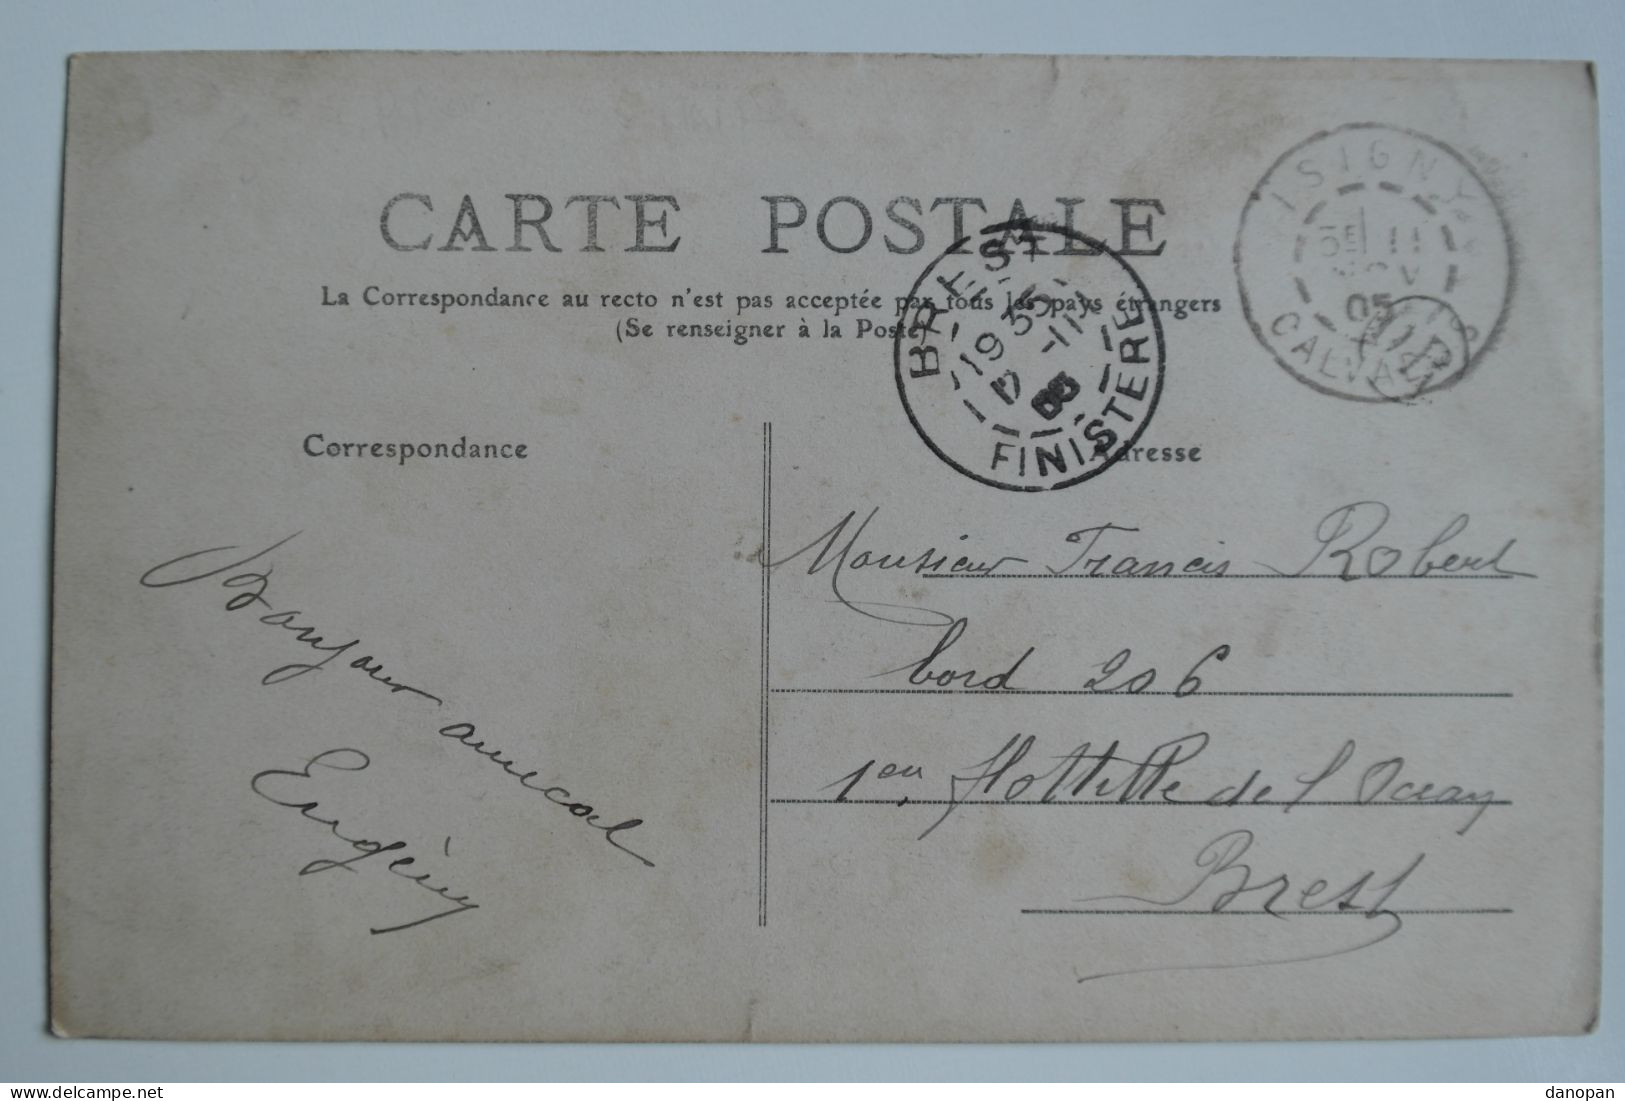 CARTE POSTALE
La Correspondance au recto n'est pas acceptée par tous les pays étrangers
(Se renseigner à la Poste)
ISIGNY
11
NOV
05
CALVADOS
BREST
19 35
-11
05
FINISTERE
Correspondance
Adresse
Bonjour amical
Eugène
Monsieur Francis Robert
bord 206
1ere Flottille de l'Ocean
Brest
delcampe.net
danopan